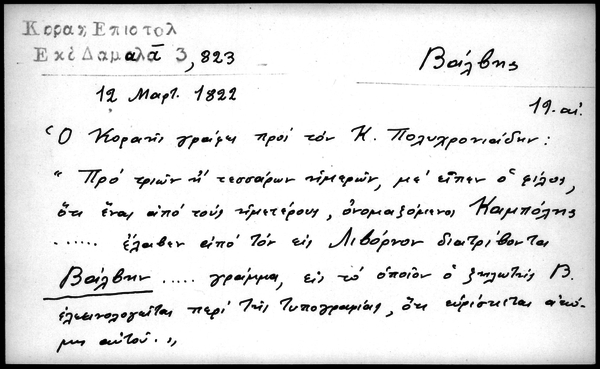 Κοραη Επιστολ
Εκδ Δαμαλᾶ 3, 823
Βάλβης
12 Μαρτ. 1822
19. αἰ.
Ὁ Κοραῆς γράφει πρὸς τὸν Κ. Πολυχρονιάδην:
"Πρὸ τριῶν ἢ τεσσάρων ἡμερῶν, μὲ εἶπεν ὁ φίλος,
ὅτι ἕνας ἀπὸ τοὺς ἡμετέρους, ὀνομαζόμενος Καμπόλης
...... ἔλαβεν ἀπὸ τὸν εἰς Λιβόρνον διατρίβοντα
Βάλβην ..... γράμμα, εἰς τὸ ὁποῖον ὁ ζηλωτὴς Β.
ἐλεεινολογεῖται περὶ τῆς τυπογραφίας, ὅτι εὑρίσκεται ἀκό-
μη αὐτοῦ."